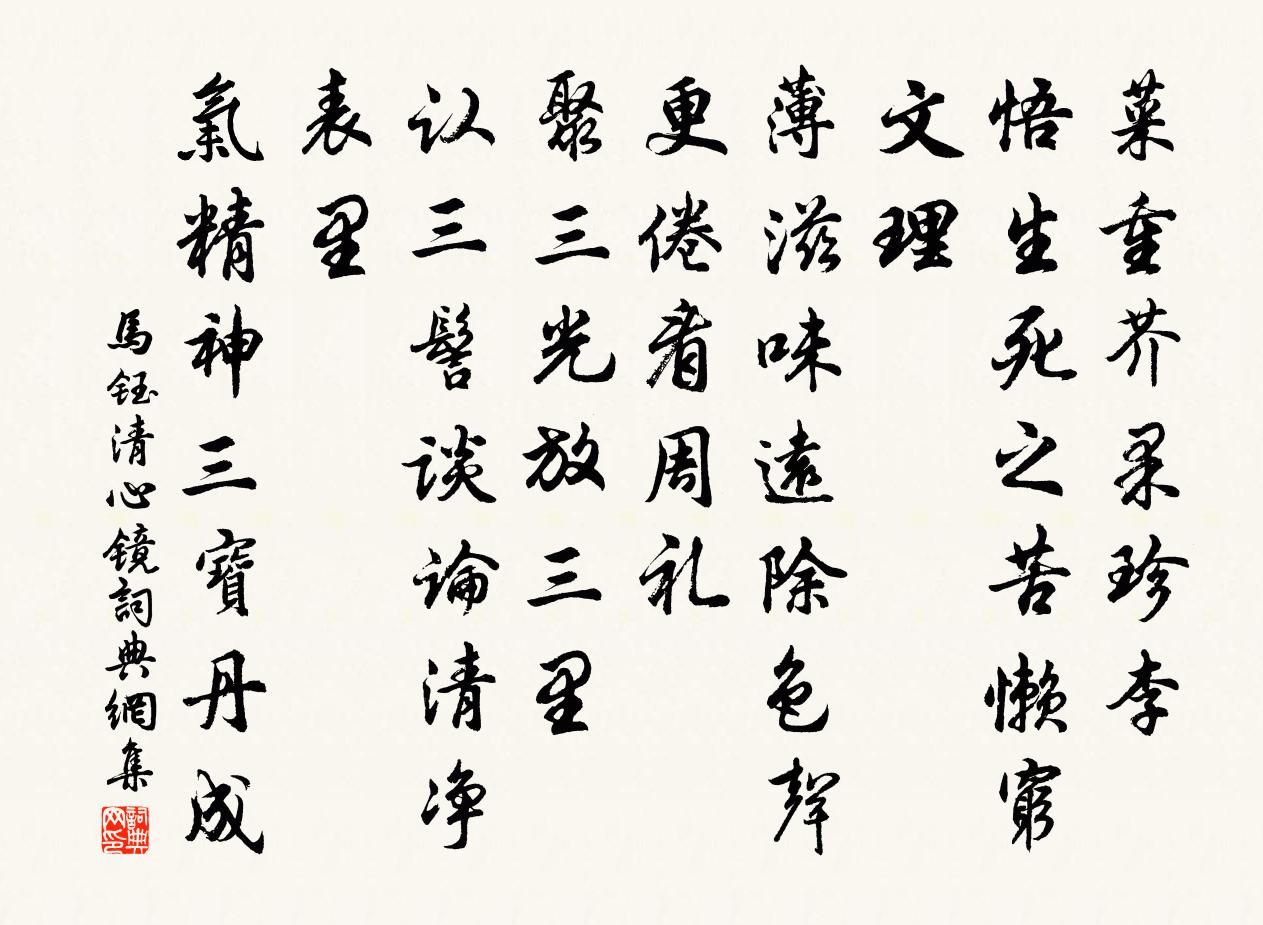 菜重芥果珍李
悟生死之苦懶窮
文理
薄滋味遠除色聲
更倦看周礼
聚三光放三里
认三髻谈論清净
表里
氣精神三寶丹成
馬鈺清心鏡詞典網集
詞典网印